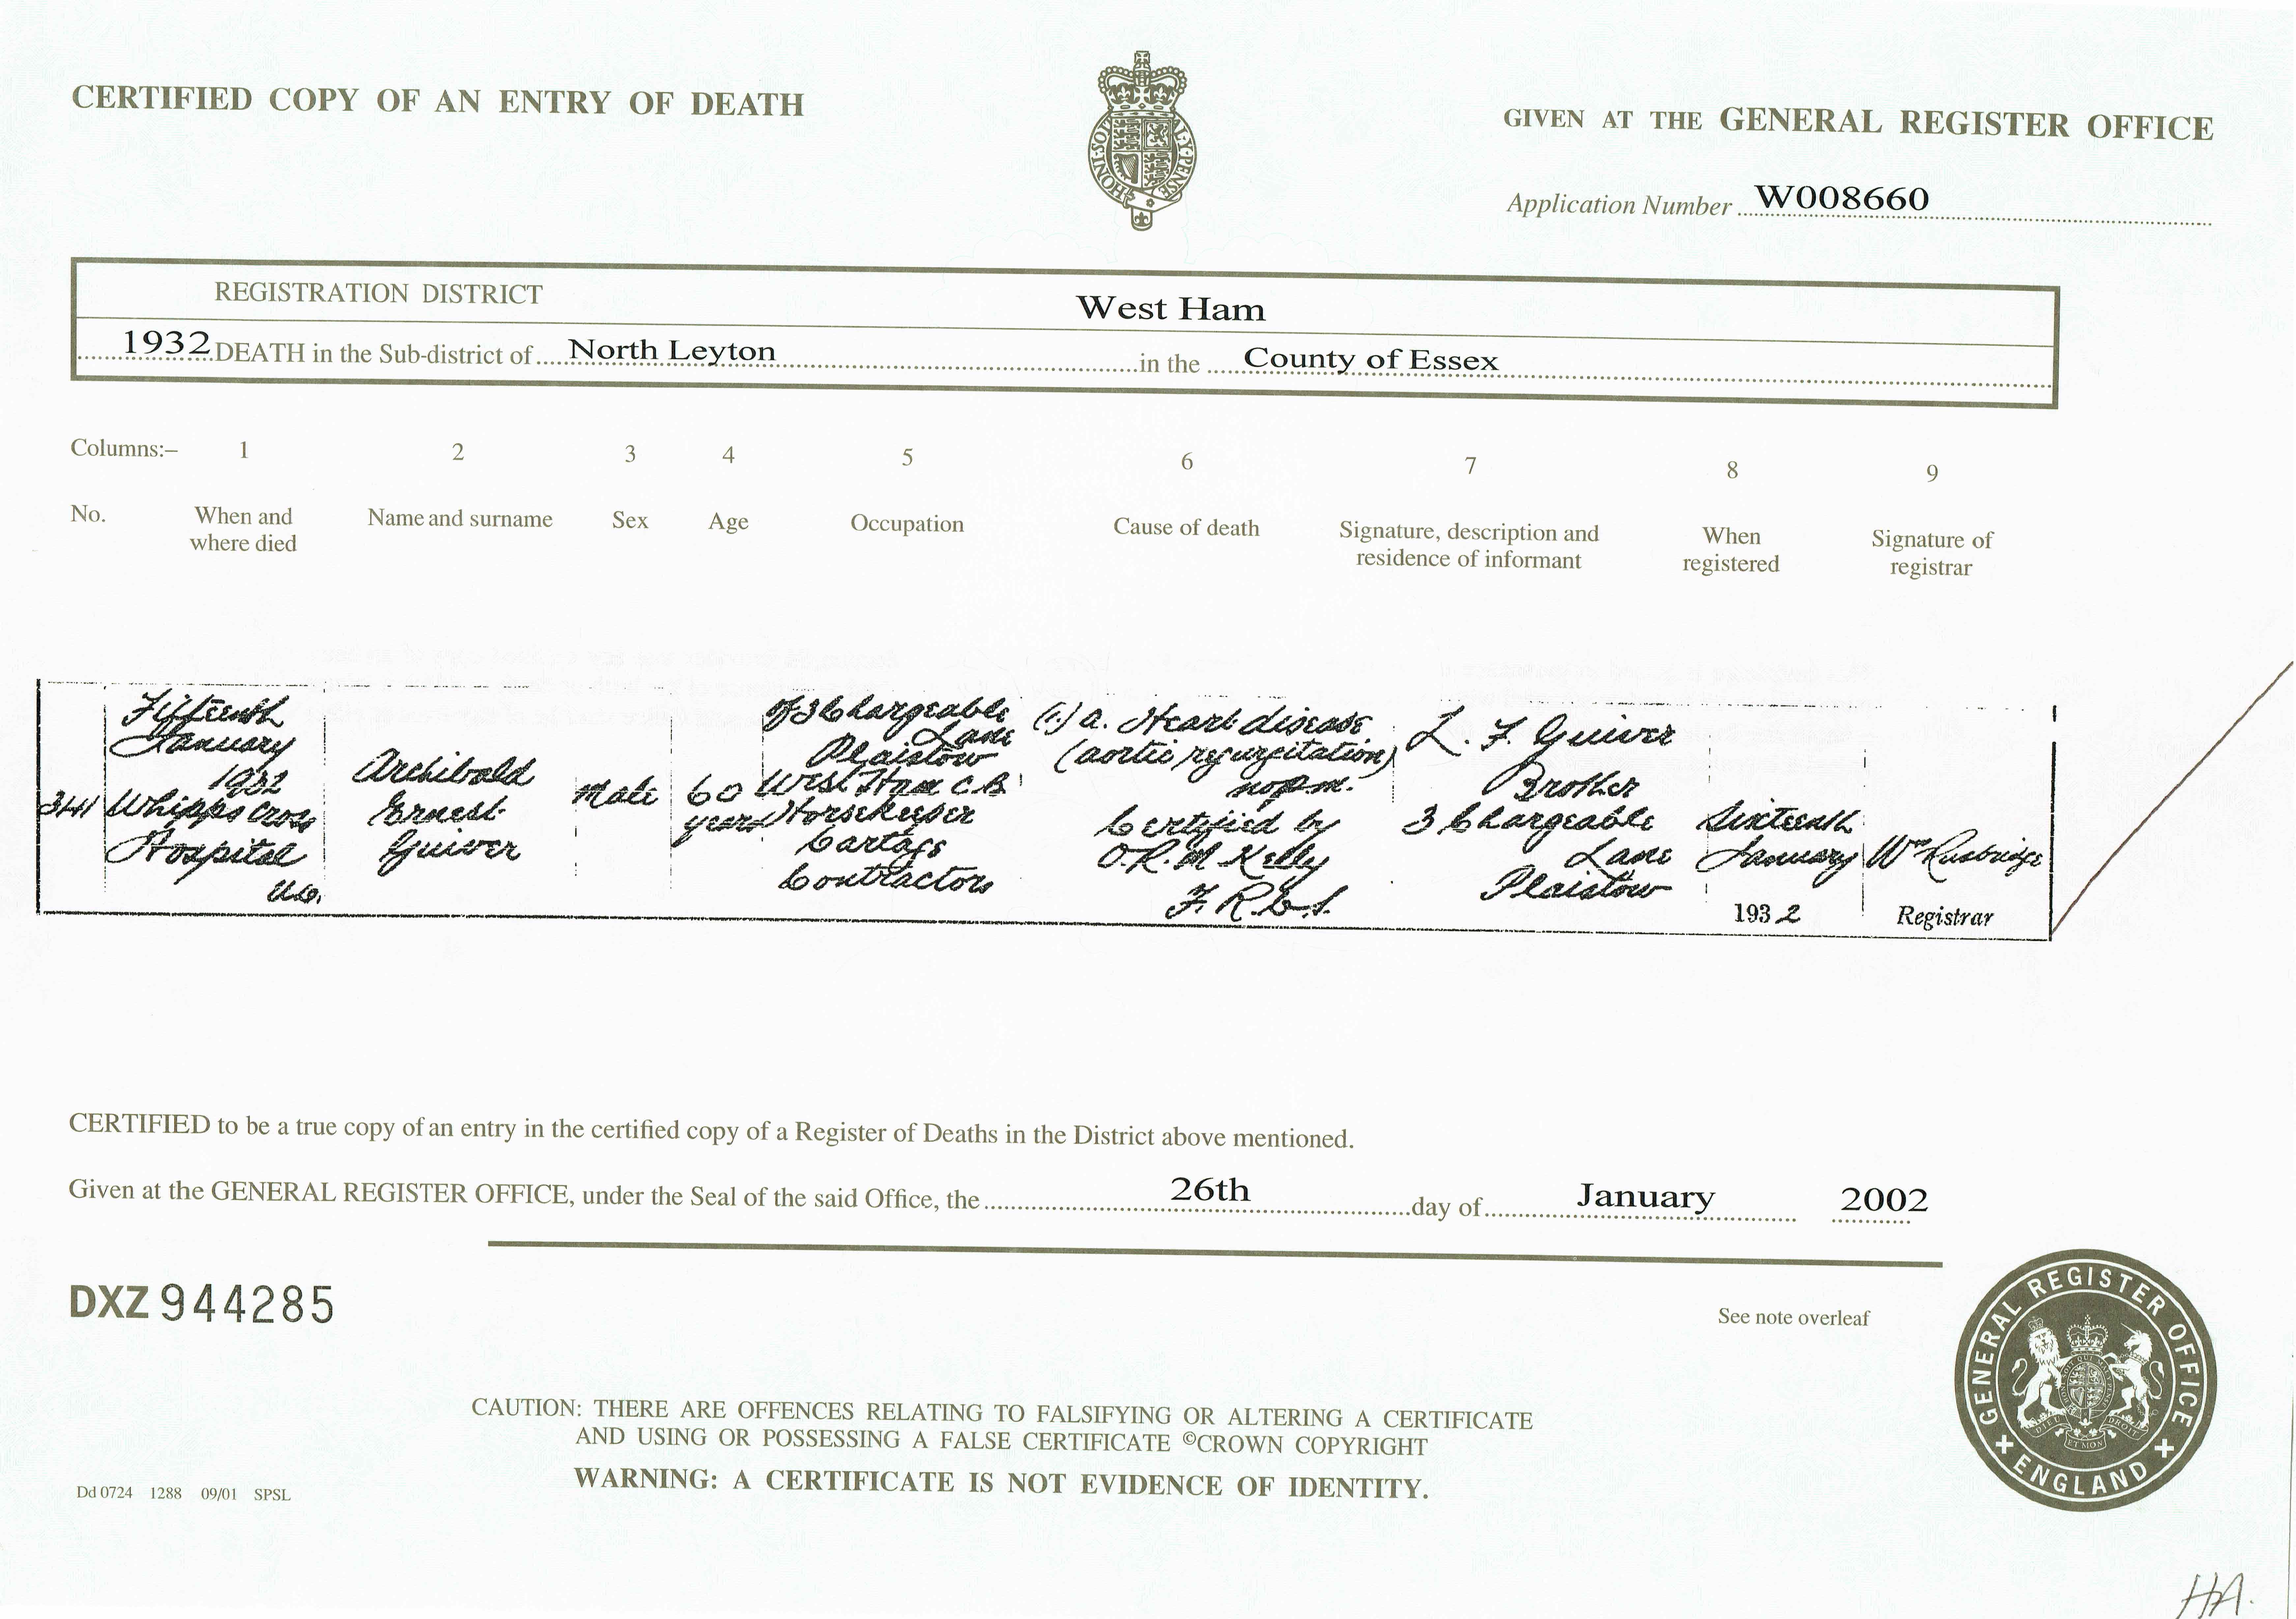 CERTIFIED COPY OF AN ENTRY OF DEATH
HONI·SOIT AL·Y·PENSE
GIVEN AT THE GENERAL REGISTER OFFICE
Application Number W008660
REGISTRATION DISTRICT West Ham
1932 DEATH in the Sub-district of North Leyton in the County of Essex
Columns:– 1 2 3 4 5 6 7 8 9
No.
When and
where died
Name and surname
Sex
Age
Occupation
Cause of death
Signature, description and
residence of informant
When
registered
Signature of
registrar
341
Fifteenth
January
1932
Whipps Cross
Hospital
Archibald
Ernest
Guiver
Male
60
years
of 3 Chargeable
Lane
Plaistow
West Ham C.B.
Horsekeeper
Cartage
Contractors
(1) a. Heart disease
(aortic regurgitation)
no p.m.
Certified by
O.R.M Kelly
F.R.C.S.
L. F. Guiver
Brother
3 Chargeable
Lane
Plaistow
Sixteenth
January
1932
Wm Rusbridge
Registrar
CERTIFIED to be a true copy of an entry in the certified copy of a Register of Deaths in the District above mentioned.
Given at the GENERAL REGISTER OFFICE, under the Seal of the said Office, the 26th day of January 2002
DXZ 944285
See note overleaf
GENERAL REGISTER OFFICE
ENGLAND
CAUTION: THERE ARE OFFENCES RELATING TO FALSIFYING OR ALTERING A CERTIFICATE
AND USING OR POSSESSING A FALSE CERTIFICATE ©CROWN COPYRIGHT
WARNING: A CERTIFICATE IS NOT EVIDENCE OF IDENTITY.
Dd 0724 1288 09/01 SPSL
HA.